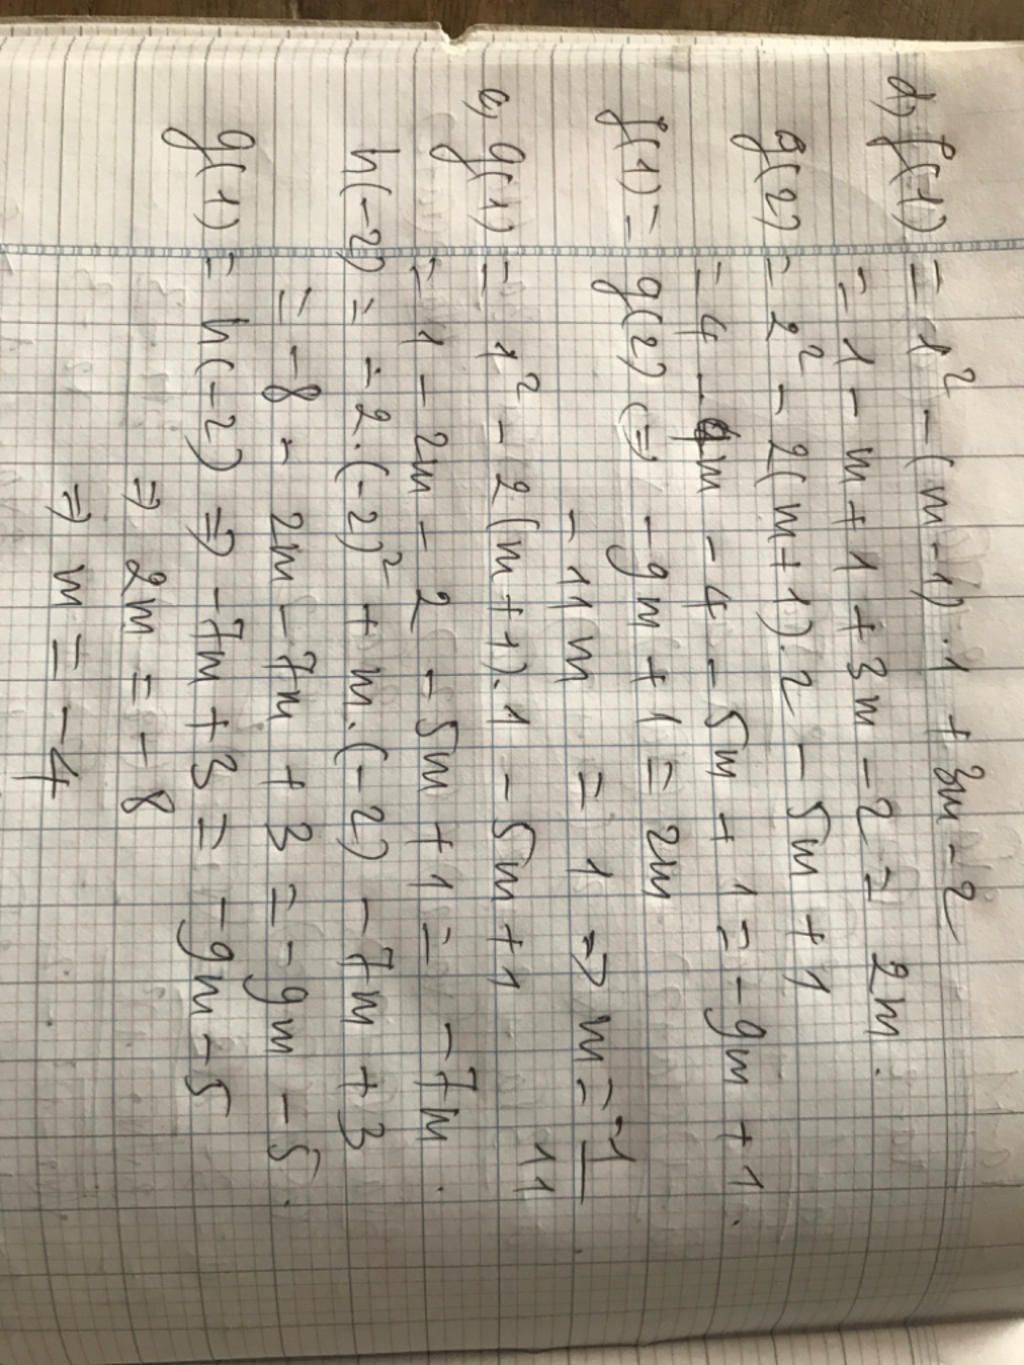 d, f(1) = 1² - (m-1).1 + 3m-2
= 1 - m + 1 + 3m - 2 = 2m.
g(2) = 2² - 2(m+1).2 - 5m + 1
= 4 - 4m - 4 - 5m + 1 = -9m + 1.
f(1) = g(2) (=) -9m + 1 = 2m
-11m = 1 => m = -1/11
e, g(1) = 1² - 2(m+1).1 - 5m + 1
= 1 - 2m - 2 - 5m + 1 = -7m.
h(-2) = -2.(-2)² + m.(-2) - 7m + 3
= -8 - 2m - 7m + 3 = -9m - 5.
g(1) = h(-2) => -7m + 3 = -9m - 5
=> 2m = -8
=> m = -4